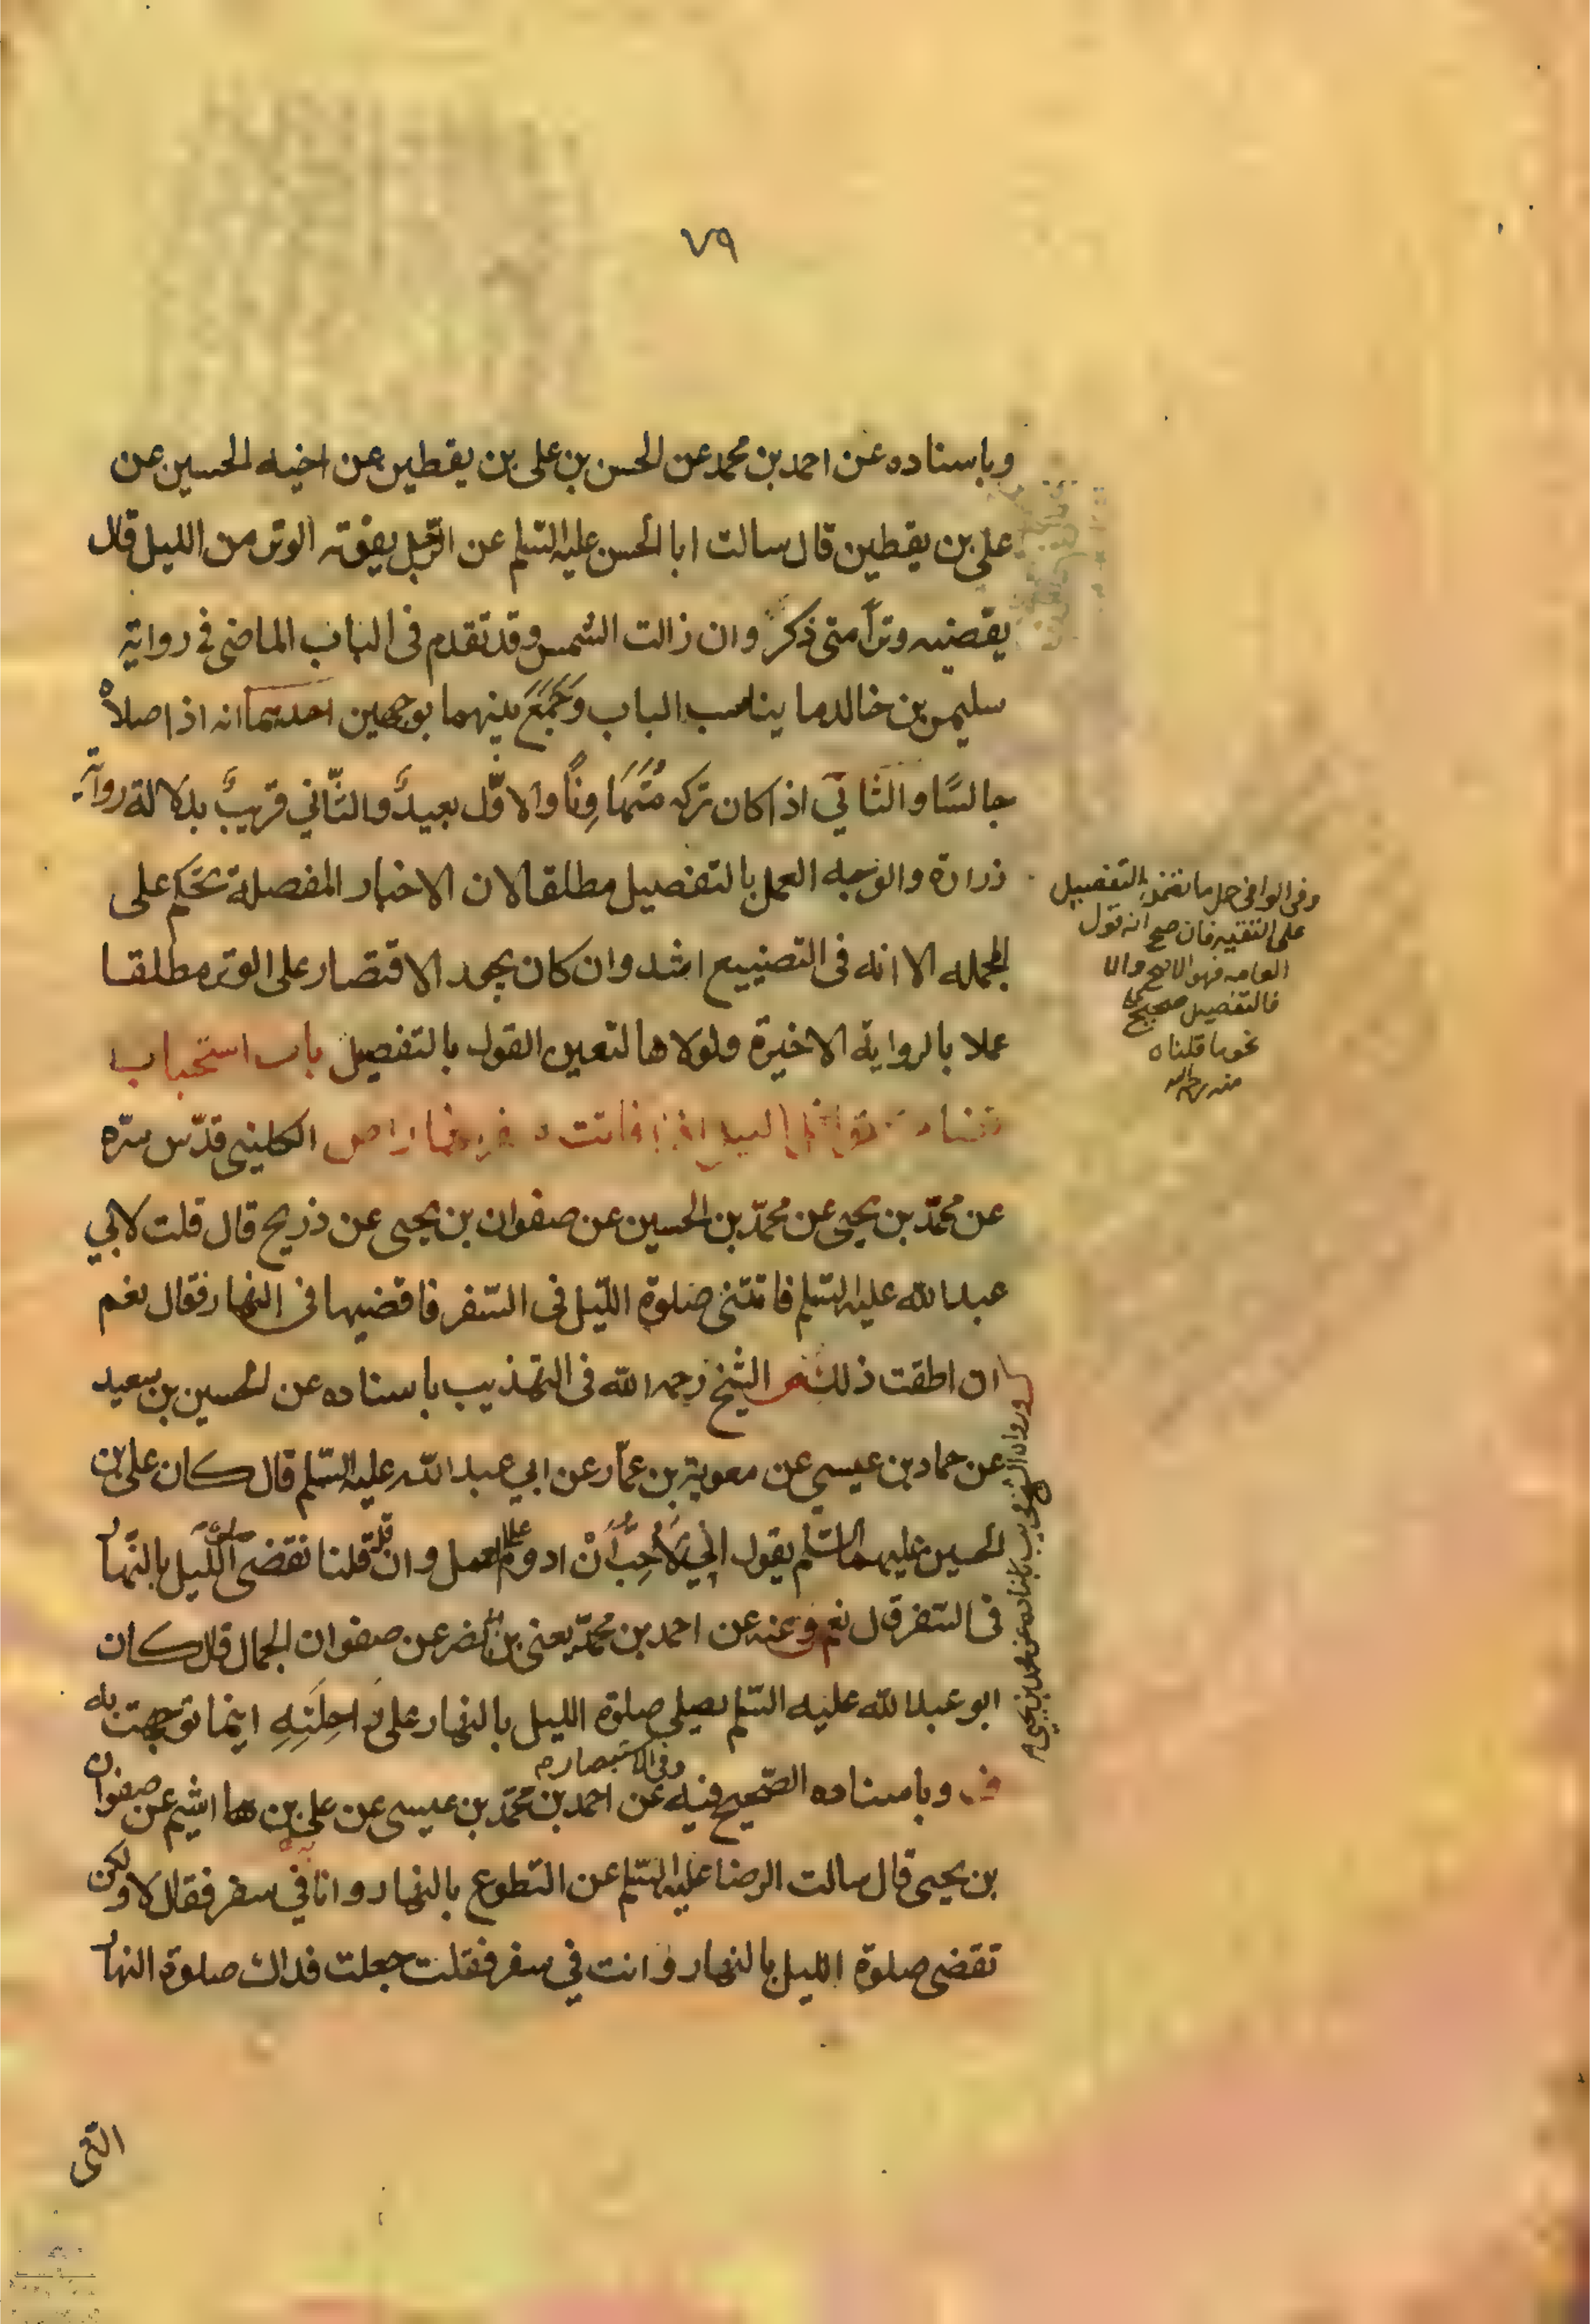 ٧٩
وباسناده عن احمد بن محمد عن الحسن بن على بن يقطين عن اخيه الحسين عن
على بن يقطين قال سالت ابا الحسن عليه السلم عن الرّجل يفوته الوتر من الليل قال
يقضيه وتراً متى ذكر وان زالت الشمس وقد تقدم فى الباب الماضى فى رواية
سليمن بن خالد ما يناسب الباب وجمع بينهما بوجهين احديهما انه اذا صلاّ
جالسًا والثّاني اذا كان تركه متهاوناً والاوّل بعيدٌ والثّاني قريبٌ بدلالة رواية
زرارة والوجه العمل بالتفصيل مطلقا لان الاخبار المفصلة تحكم على
المجمله الا انه فى التضييع اشد وان كان يجمد الاقتصار على الوتر مطلقا
عملا بالرواية الاخيرة ولولاها لتعين القول بالتفصيل باب استحباب
قضاء نوافل الليل اذا فاتت سفرا نهارا الكلينى قدّس سرّه
عن محمّد بن يحيى عن محمّد بن الحسين عن صفوان بن يحيى عن ذريح قال قلت لابي
عبد الله عليه السلم فاتتنى صلوة اللّيل فى السّفر فاقضيها فى النهار فقال نعم
ان اطقت ذلك الشيخ رحمه الله فى التهذيب باسناده عن الحسين بن سعيد
عن حماد بن عيسى عن معوية بن عمّار عن ابي عبد الله عليه السّلم قال كان على بن
الحسين عليهما السّلم يقول انّي لاُحِبُّ اَنْ ادوم على العمل وان قلّ قلنا نقضى صلوة اللّيل بالنّهار
فى السّفر قال نعم وعنه عن احمد بن محمّد يعنى بن ابى نصر عن صفوان الجمال قال كان
ابو عبد الله عليه السّلم يصلى صلوة الليل بالنهار على راحِلَتِهِ اينما توجهت به
وباسناده الصّحيح فيه وفى الاستبصار عن احمد بن محمّد بن عيسى عن على بن ها اشيم عن صفوان
بن يحيى قال سالت الرضا عليه السّلم عن التطوع بالنهار وانا في سفر فقال لا ولكن
تقضى صلوة الليل بالنهار وانت في سفر فقلت جعلت فداك صلوة النهار
التى
وفى الوافى حمل ما تضمن التفصيل
على التقيه فان صح انه قول
العامه فهو الاصح والا
فالتفصيل صحيح على
نحو ما قلناه
منه رحمه الله
ورواه الشيخ فى يب باسناده عن محمد بن يحيى